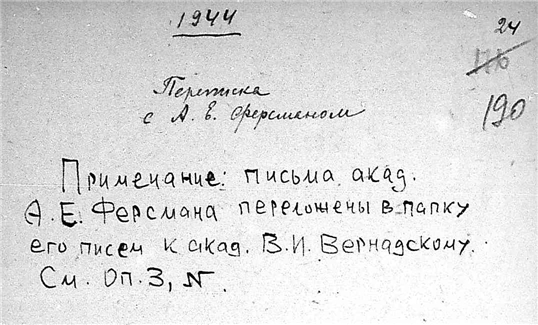 1944
24
190
Переписка
с А. Е. Ферсманом
Примечание: письма акад.
А. Е. Ферсмана переложены в папку
его писем к акад. В. И. Вернадскому.
См. Оп. 3, N.